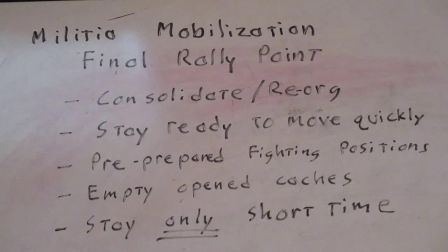 Militia Mobilization
Final Rally Point
- Consolidate/Re-org
- Stay ready to move quickly
- Pre-prepared Fighting Positions
- Empty opened caches
- Stay only short time